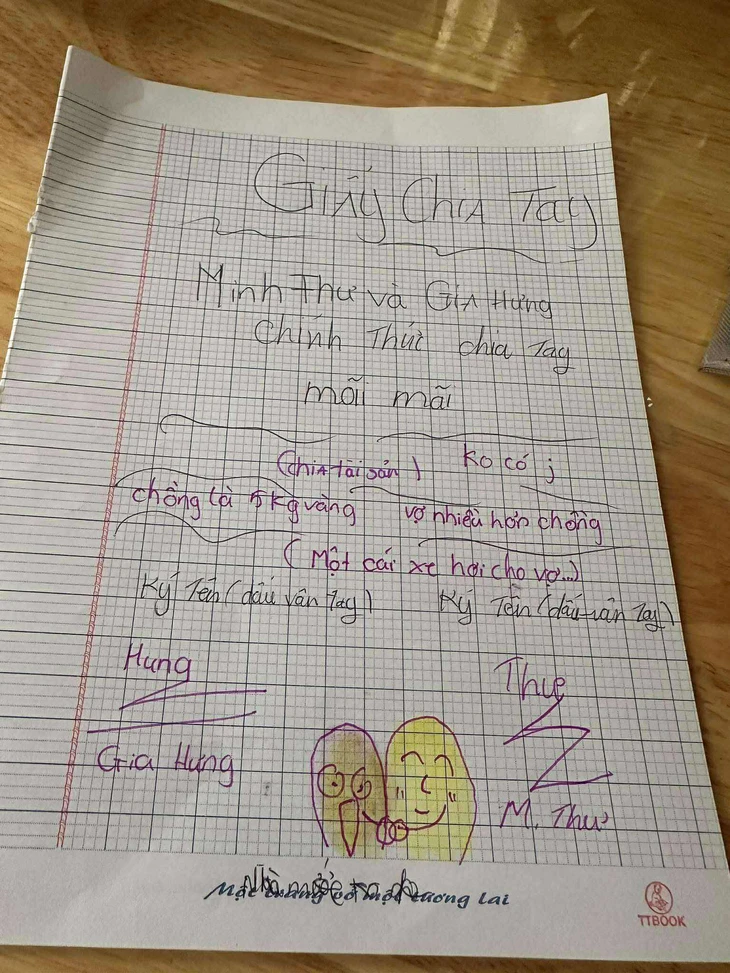 Giấy Chia Tay
Minh Thư và Gia Hưng
Chính Thức chia Tay
mãi mãi
(chia tài sản) ko có j
chồng là 5 kg vàng vợ nhiều hơn chồng
(Một cái xe hơi cho vợ...)
Ký Tên (dấu vân Tay) Ký Tên (dấu vân Tay)
Hưng Thư
Gia Hưng M. Thư
tương lai
TTBOOK